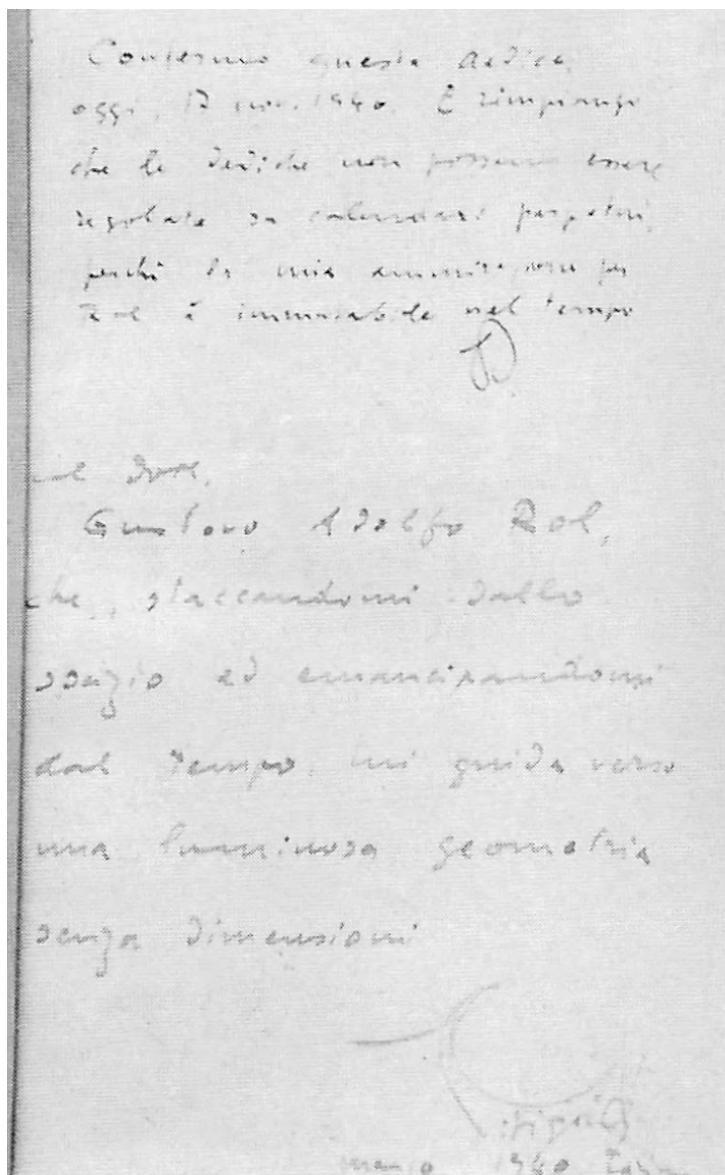 Confermo questa dedica,
oggi, 17 nov. 1940. E rimpiango
che le dediche non possano essere
regolate da calendari perpetui,
perché la mia ammirazione per
te è immutabile nel tempo
al Dott.
Gustavo Adolfo Rol,
che, staccandomi dallo
spazio ed emancipandomi
dal tempo, mi guida verso
una luminosa geometria
senza dimensioni
Pitigrilli
marzo 1940